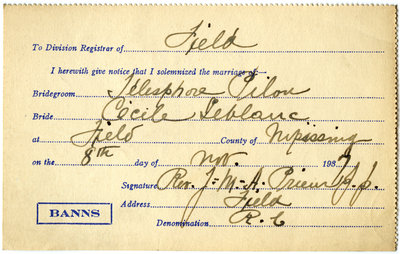 To Division Registrar of Field
I herewith give notice that I solemnized the marriage of:—
Bridegroom Télesphore Pilon
Bride Cécile Leblanc
at Field County of Nipissing
on the 8th day of Nov. 193
Signature Rev. J.-M.-A. Prieur p.p.
Address Field
BANNS
Denomination R. C